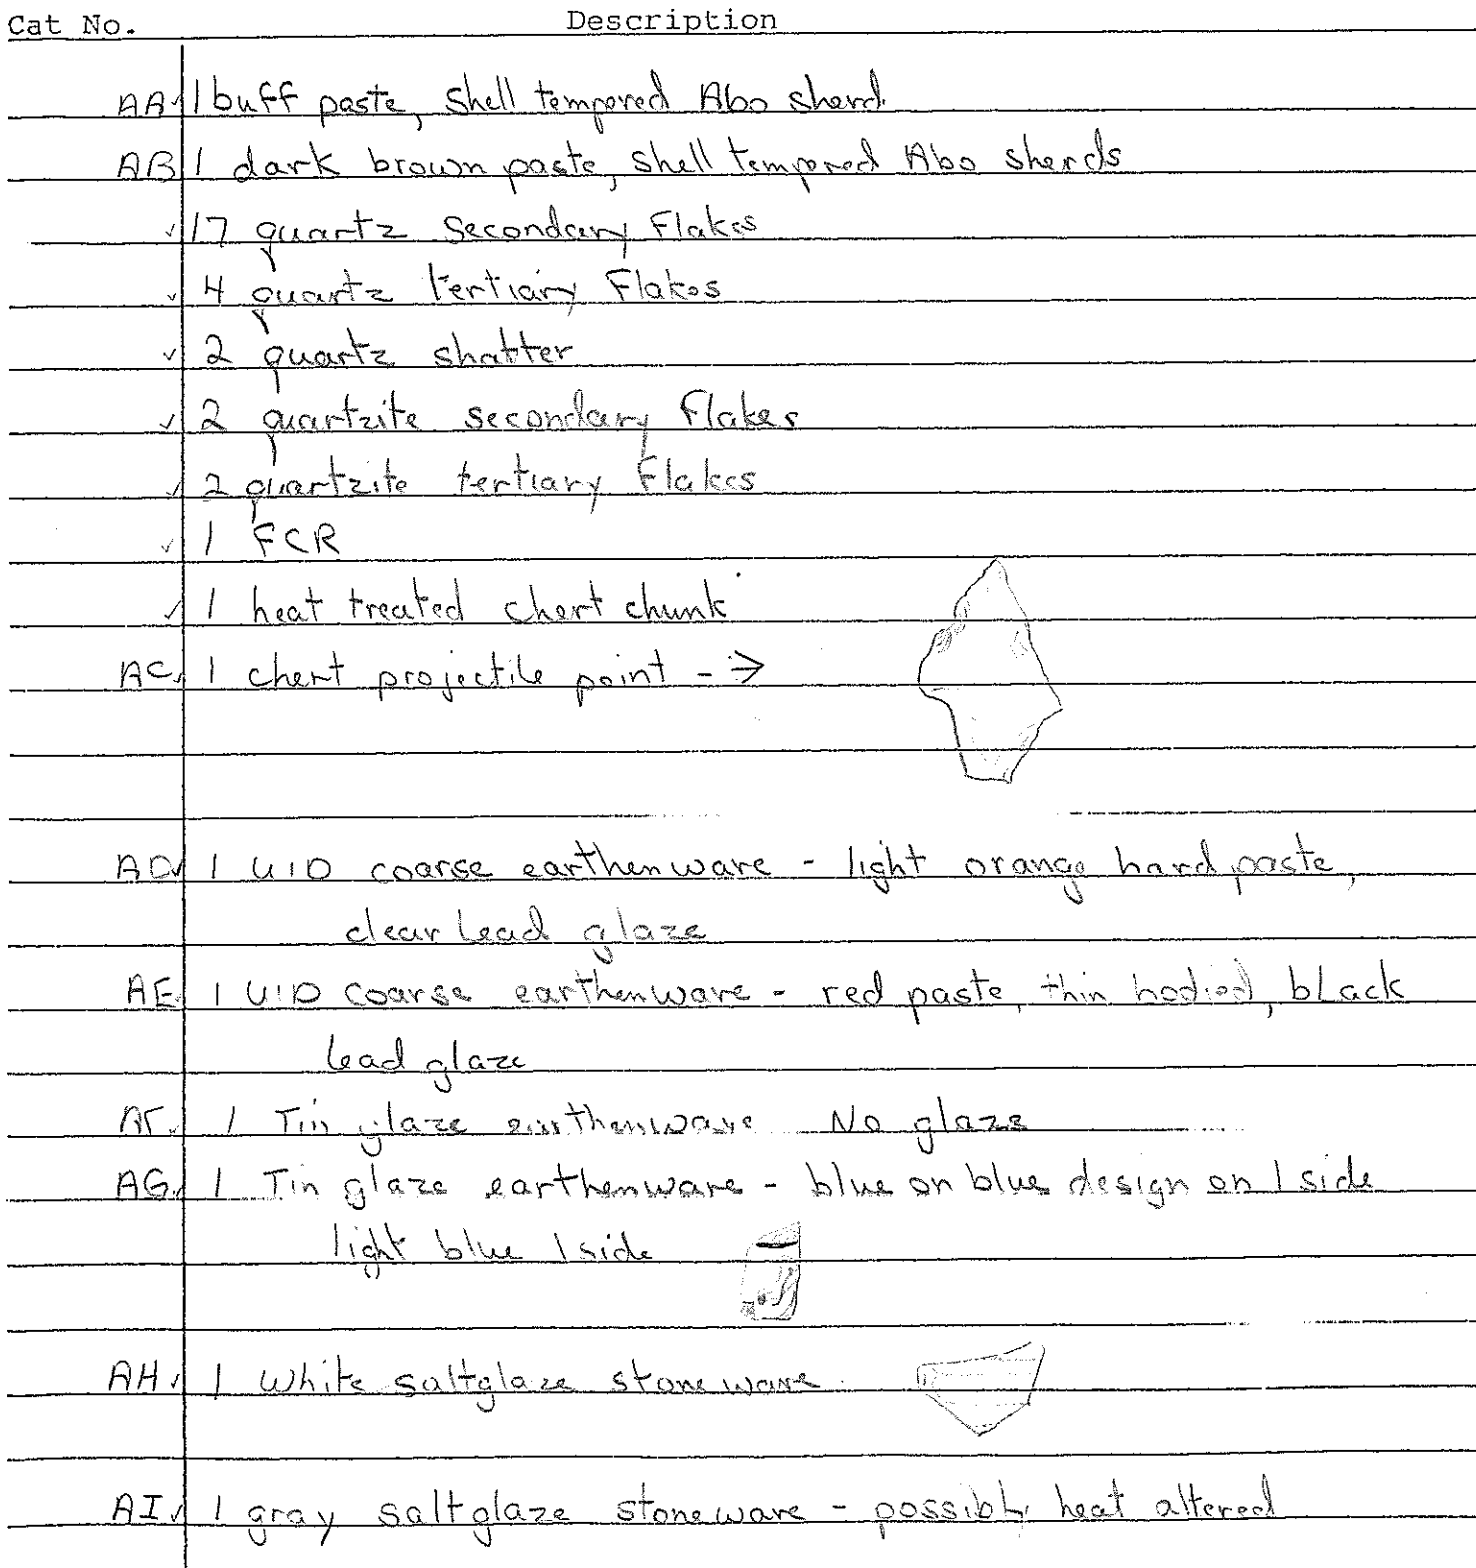 Cat No. Description
AA ✓ 1 buff paste, shell tempered Abo sherd.
AB 1 dark brown paste, shell tempered Abo sherds
✓ 17 quartz secondary flakes
✓ 4 quartz tertiary flakes
✓ 2 quartz shatter
✓ 2 quartzite secondary flakes
✓ 2 quartzite tertiary flakes
✓ 1 FCR
✓ 1 heat treated chert chunk
AC ✓ 1 chert projectile point - →
AD ✓ 1 UID coarse earthenware - light orange hard paste,
clear lead glaze
AE ✓ 1 UID coarse earthenware - red paste, thin bodied, black
lead glaze
AF ✓ 1 Tin glaze earthenware No glaze
AG ✓ 1 Tin glaze earthenware - blue on blue design on 1 side
light blue 1 side
AH ✓ 1 White saltglaze stoneware
AI ✓ 1 gray saltglaze stoneware - possibly heat altered